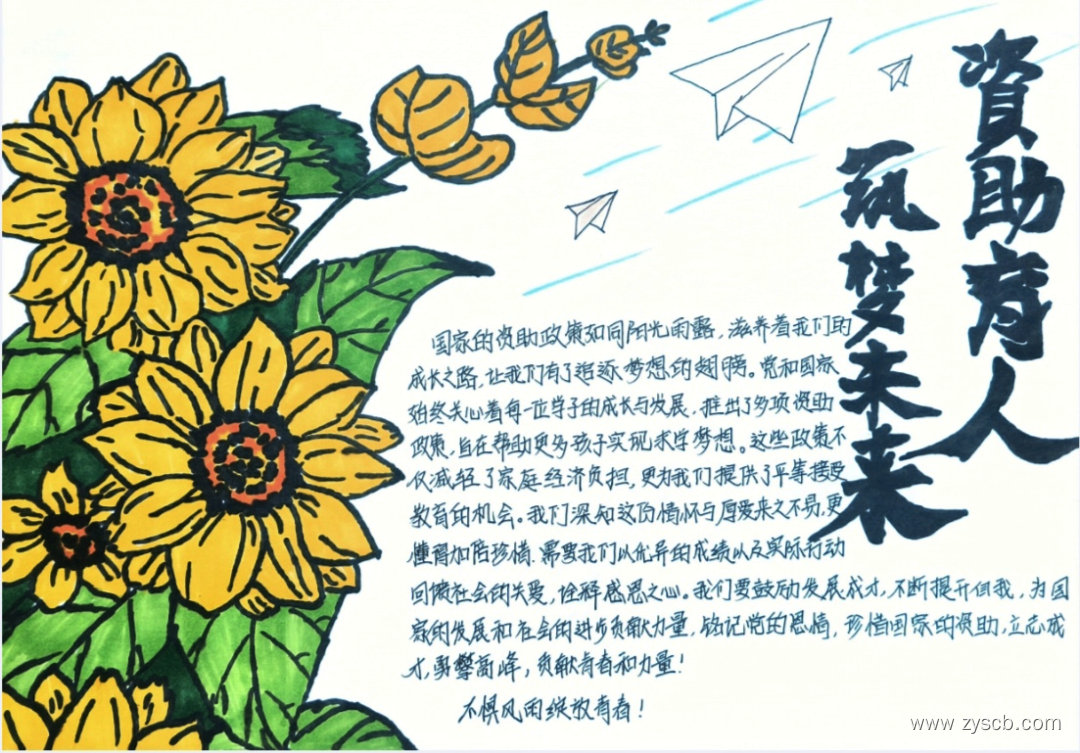 資助育人
筑梦未来
国家的资助政策如同阳光雨露，滋养着我们的
成长之路，让我们有了追逐梦想的翅膀。党和国家
始终关心着每一位学子的成长与发展，推出了多项资助
政策，旨在帮助更多孩子实现求学梦想。这些政策不
仅减轻了家庭经济负担，更为我们提供了平等接受
教育的机会。我们深知这份情怀与厚爱来之不易，更
懂得加倍珍惜，需要我们以优异的成绩以及实际行动
回馈社会的关爱，诠释感恩之心。我们要鼓励发展成才，不断提升自我，为国
家的发展和社会的进步贡献力量，铭记党的恩情，珍惜国家的资助，立志成
才，勇攀高峰，贡献青春和力量！
不惧风雨绽放青春！
www.zyscb.com